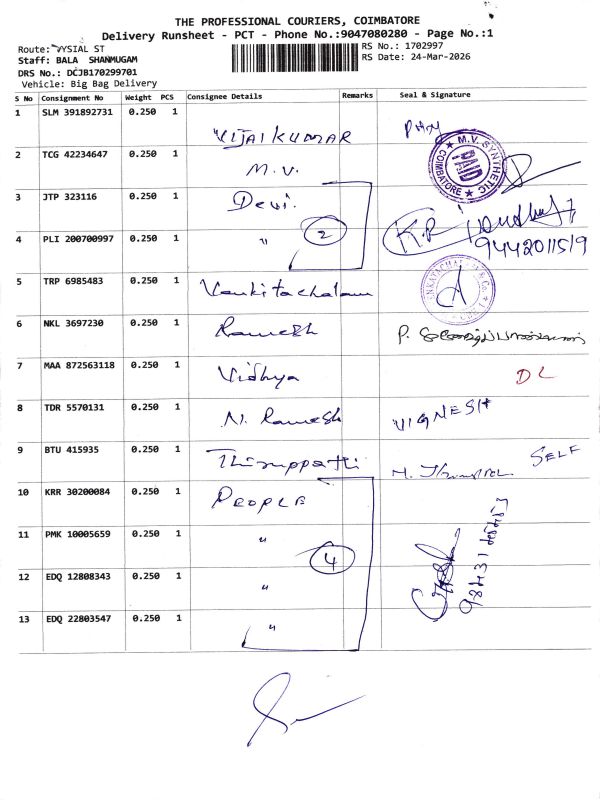 THE PROFESSIONAL COURIERS, COIMBATORE
Delivery Runsheet - PCT - Phone No.:9047080280 - Page No.:1
Route: VYSIAL ST
RS No.: 1702997
Staff: BALA SHANMUGAM
RS Date: 24-Mar-2026
DRS No.: DCJB170299701
Vehicle: Big Bag Delivery
S No Consignment No Weight PCS Consignee Details Remarks Seal & Signature
1 SLM 391892731 0.250 1 VIJAIKUMAR
2 TCG 42234647 0.250 1 M.V. M.V. SYNTHETIC COIMBATORE PAID
3 JTP 323116 0.250 1 Devi.
4 PLI 200700997 0.250 1 " 2 K.P 9442011519
5 TRP 6985483 0.250 1 Venkitachalam
6 NKL 3697230 0.250 1 Ramesh P.
7 MAA 872563118 0.250 1 Vidhya DL
8 TDR 5570131 0.250 1 N. Ramesh VIGNESH
9 BTU 415935 0.250 1 Thiruppathi SELF
10 KRR 30200084 0.250 1 PEOPLE
11 PMK 10005659 0.250 1 " 4
12 EDQ 12808343 0.250 1 "
13 EDQ 22803547 0.250 1 "